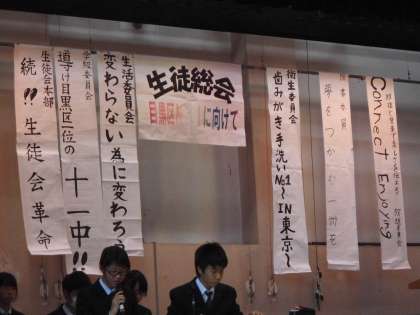 生徒会本部
続!!生徒会革命
学級委員会
導け目黒区一位の
十一中!!
生活委員会
変わらない為に変わろう
生徒総会
目黒区
に向けて
衛生委員会
歯みがき手洗い№1
〜IN東京〜
夢をつかむ一冊を
Connect Enjoying
放送委員会